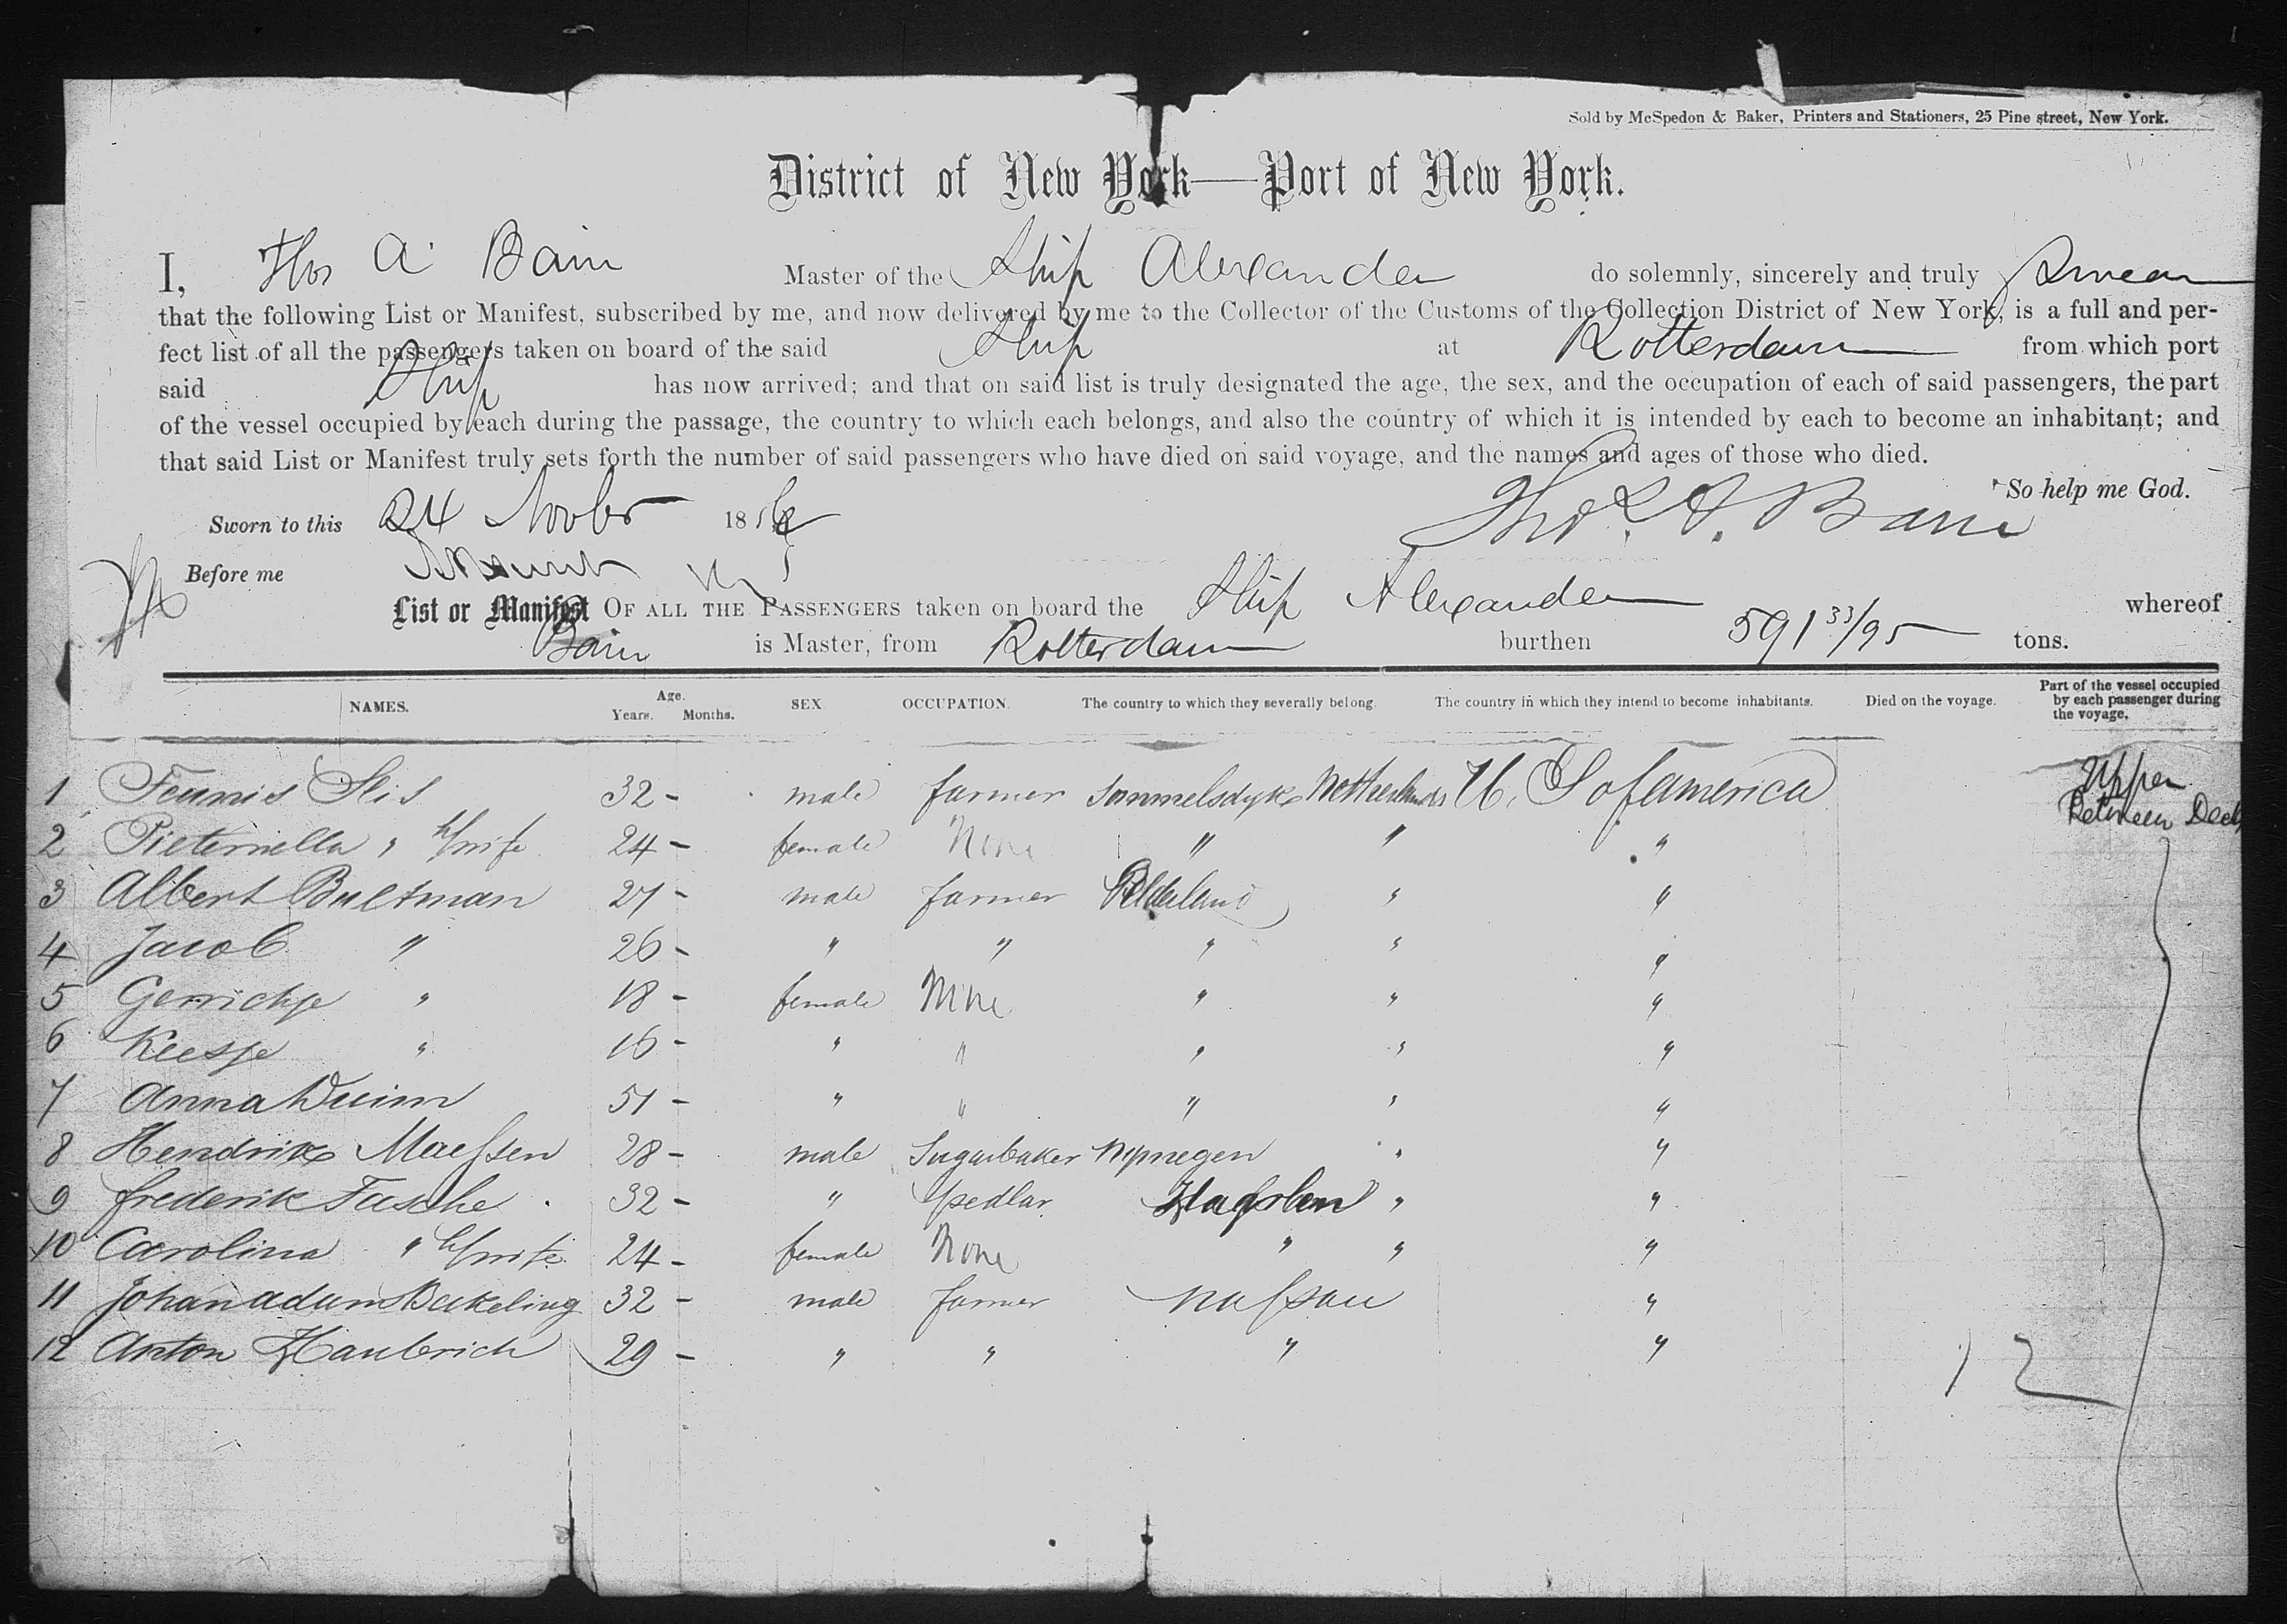 Sold by McSpedon & Baker, Printers and Stationers, 25 Pine street, New York.
District of New York—Port of New York.
I, Thos A. Bain Master of the Ship Alexander do solemnly, sincerely and truly Swear
that the following List or Manifest, subscribed by me, and now delivered by me to the Collector of the Customs of the Collection District of New York, is a full and per-
fect list of all the passengers taken on board of the said Ship at Rotterdam from which port
said Ship has now arrived; and that on said list is truly designated the age, the sex, and the occupation of each of said passengers, the part
of the vessel occupied by each during the passage, the country to which each belongs, and also the country of which it is intended by each to become an inhabitant; and
that said List or Manifest truly sets forth the number of said passengers who have died on said voyage, and the names and ages of those who died.
So help me God.
Sworn to this 24 Novbr 1856 Thos. A. Bain
Before me
List or Manifest OF ALL THE PASSENGERS taken on board the Ship Alexander whereof
Bain is Master, from Rotterdam burthen 591 33/95 tons.
NAMES. Age. Years. Months. SEX OCCUPATION. The country to which they severally belong. The country in which they intend to become inhabitants. Died on the voyage. Part of the vessel occupied by each passenger during the voyage.
1 Teunis Slis 32 - male farmer Sommelsdyk Netherlands U. S of America Upper Between Deck
2 Pieternella " Wife 24 - female None " " "
3 Albert Bultman 27 - male farmer Gelderland " "
4 Jacob " 26 - " " " " "
5 Gerrichje " 18 - female None " " "
6 Keesje " 16 - " " " " "
7 Anna 51 - " " " " "
8 Hendrik Maessen 28 - male Sugarbaker Nymegen " "
9 frederik Tasche 32 - " pedlar " "
10 Carolina " Wife 24 - female None " " "
11 Johan adam Bakeling 32 - male farmer Nassau "
12 Anton Haubrich 29 - " " " "
12